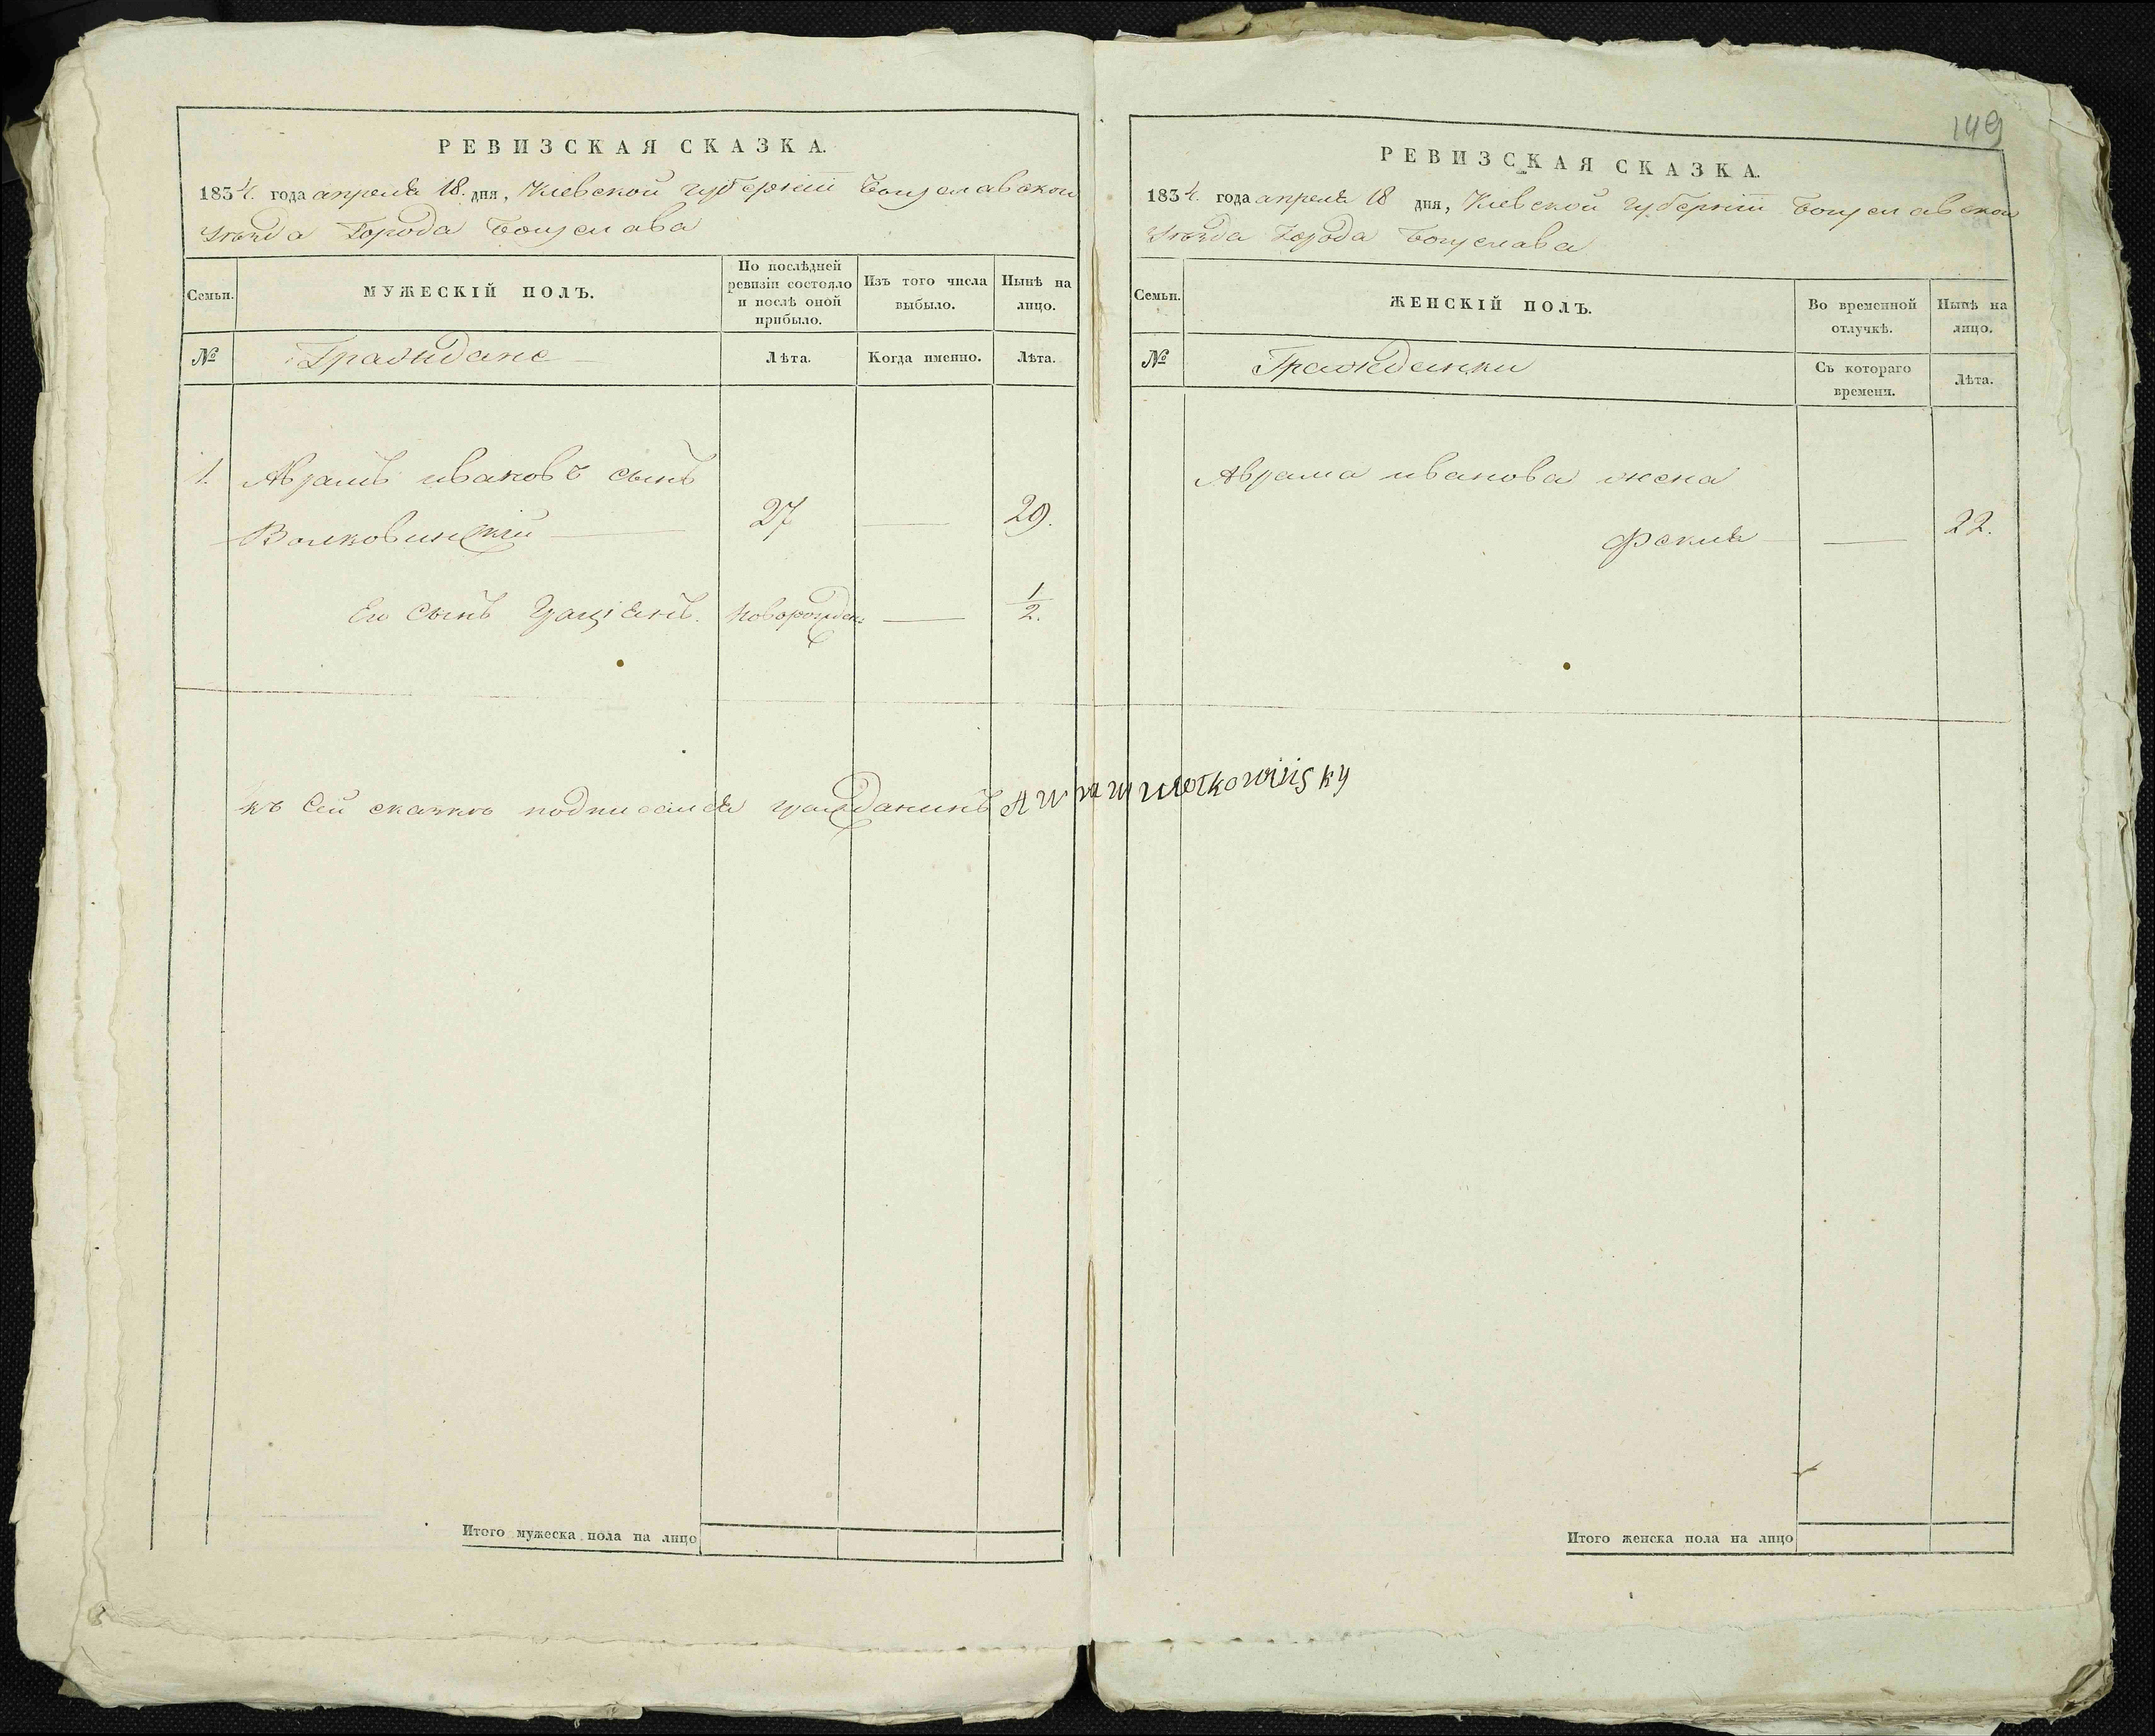 РЕВИЗСКАЯ СКАЗКА.
1834. года апреля 18. дня, Кіевской губерніи Богуславскои
Уѣзда Города Богуслава
Семьи.
МУЖЕСКІЙ ПОЛЪ.
По послѣдней ревизіи состояло и послѣ оной прибыло.
Изъ того числа выбыло.
Нынѣ на лицо.
№
Граждане
Лѣта.
Когда именно.
Лѣта.
1. Аврамъ ивановъ сынъ
Волковинскій 27 29.
Его Сынъ Новорожден: 1/2.
къ сей сказкѣ подписался гражданинъ Awram Wołkowińsky
Итого мужеска пола на лицо
149
РЕВИЗСКАЯ СКАЗКА.
1834. года апреля 18 дня, Кіевской губерніи Богуславскои
Уѣзда Города Богуслава
Семьи.
ЖЕНСКІЙ ПОЛЪ.
Во временной отлучкѣ.
Нынѣ на лицо.
№
Гражданки
Съ котораго времени.
Лѣта.
Аврама иванова жена
22.
Итого женска пола на лицо